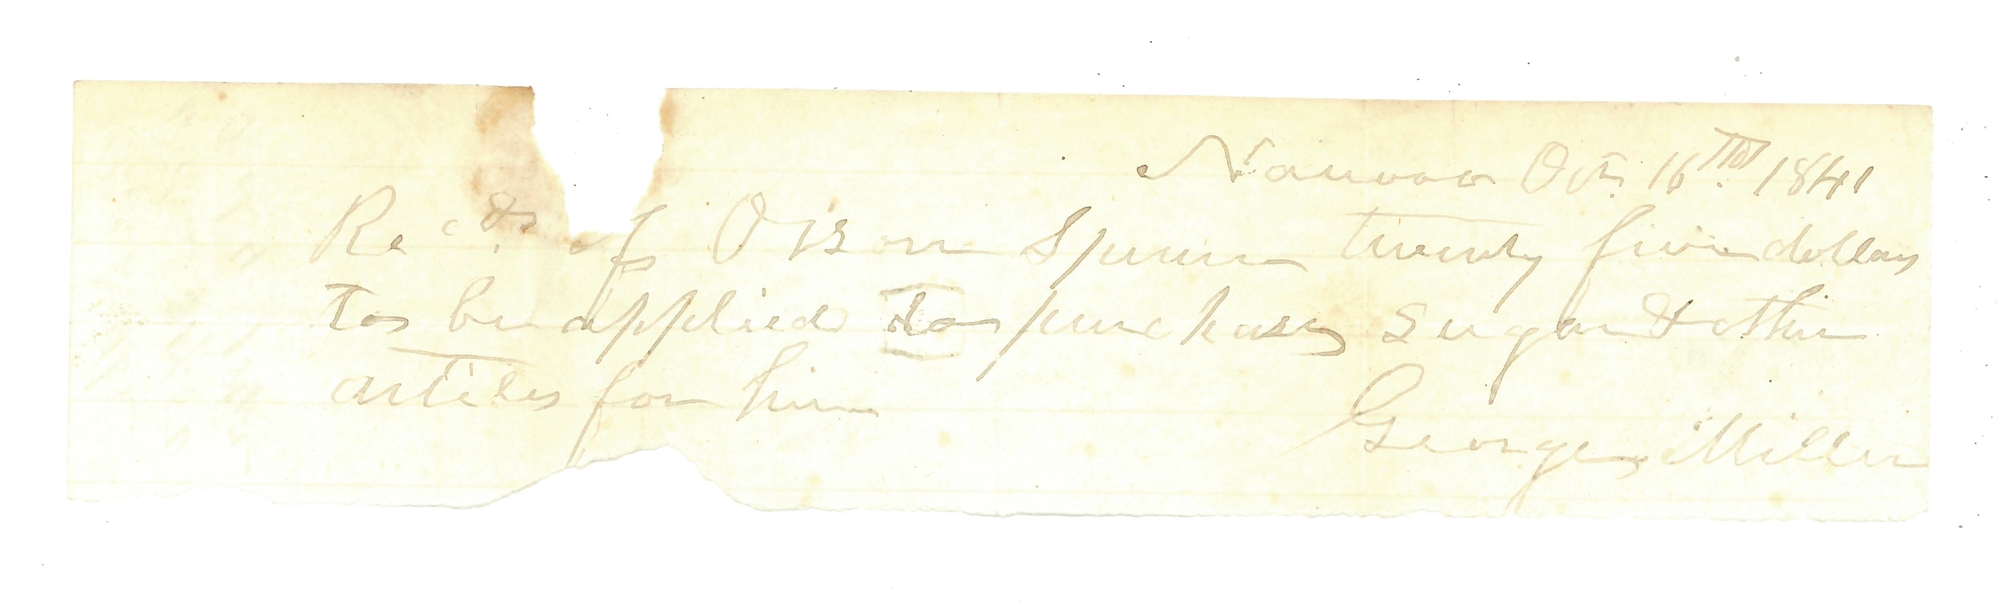 Nauvoo Oct 16th 1841
Recd. of Orson Spencer twenty five dollars
to be applied to purchase sugar & other
articles for him
George Miller